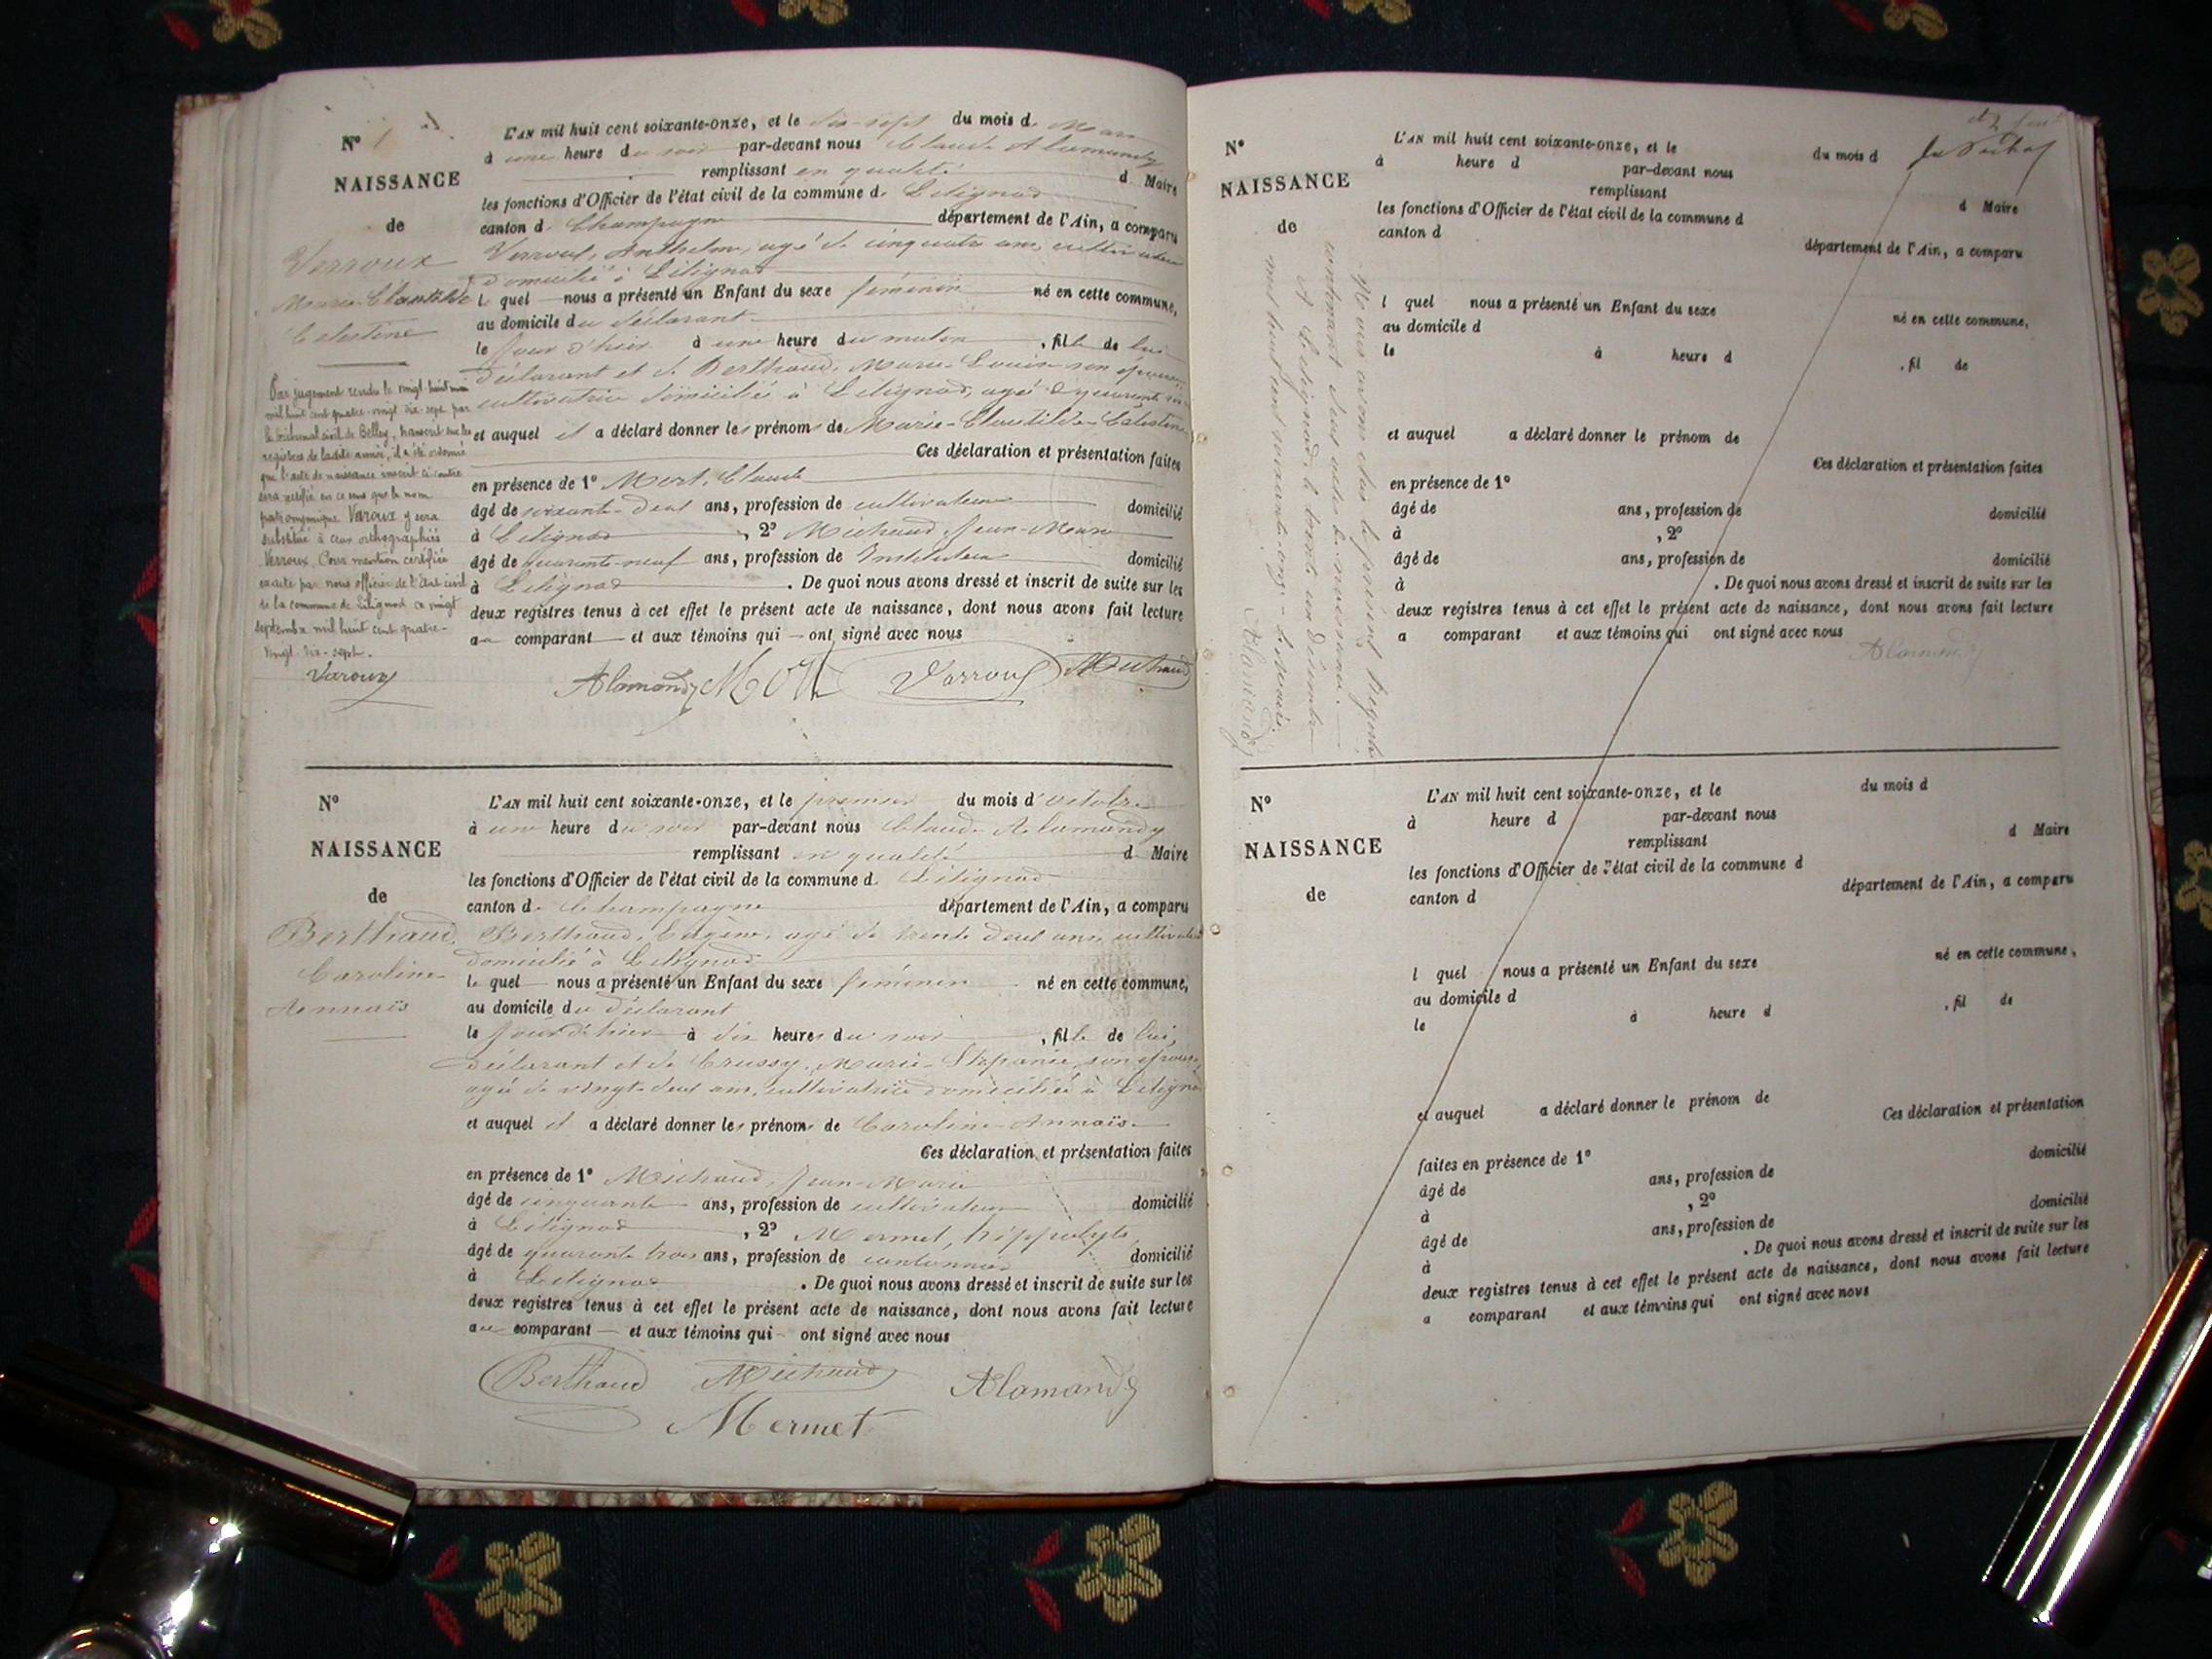 N° 1
NAISSANCE
de
Verroux
Marie-Clautilde
Celestine
Par jugement rendu le vingt huit mai
mil huit cent quatre-vingt dix-sept par
le tribunal civil de Belley, transcrit sur les
registres de ladite année, il a été ordonné
que l'acte de naissance inscrit ci-contre
sera rectifié en ce sens que le nom
patronymique Varoux y sera
substitué à ceux orthographiés
Verroux. Pour mention certifiée
exacte par nous officier de l'Etat civil
de la commune de Lilignod ce vingt
septembre mil huit cent quatre-
vingt-dix-sept.
Varoux
L'AN mil huit cent soixante-onze, et le dix-sept du mois de Mars
à une heure du soir par-devant nous Claude Alamandy
remplissant en qualité de Maire
les fonctions d'Officier de l'état civil de la commune de Lilignod
canton de Champagne département de l'Ain, a comparu
Verroux, Anthelme, agé de cinquante ans, cultivateur
domicilié à Lilignod
le quel nous a présenté un Enfant du sexe féminin né en cette commune,
au domicile du déclarant
le jour d'hier à une heure du matin, fille de lui
déclarant et de Berthaud, Marie-Louise son épouse
cultivatrice domiciliée à Lilignod, agée de quarante
et auquel il a déclaré donner les prénoms de Marie-Clautilde-Célestine
Ces déclaration et présentation faites
en présence de 1° Mort, Claude
âgé de soixante-deux ans, profession de cultivateur domicilié
à Lilignod, 2° Michaud Jean-Marie
âgé de quarante-neuf ans, profession de Instituteur domicilié
à Lilignod. De quoi nous avons dressé et inscrit de suite sur les
deux registres tenus à cet effet le présent acte de naissance, dont nous avons fait lecture
au comparant et aux témoins qui ont signé avec nous
Alamandy Mort Verroux Michaud
N°
NAISSANCE
de
Berthaud
Caroline
Annaïs
L'AN mil huit cent soixante-onze, et le premier du mois d'octobre
à une heure du soir par-devant nous Claude Alamandy
remplissant en qualité de Maire
les fonctions d'Officier de l'état civil de la commune de Lilignod
canton de Champagne département de l'Ain, a comparu
Berthaud, Eugène, agé de trente deux ans, cultivateur
domicilié à Lilignod
le quel nous a présenté un Enfant du sexe féminin né en cette commune,
au domicile du déclarant
le jour d'hier à dix heures du soir, fille de lui,
déclarant et de Crussy, Marie-Stépanie, son épouse,
agée de vingt-deux ans, cultivatrice domiciliée à Lilignod
et auquel il a déclaré donner les prénoms de Caroline-Annaïs
Ces déclaration et présentation faites
en présence de 1° Michaud, Jean-Marie
âgé de cinquante ans, profession de cultivateur domicilié
à Lilignod, 2° Mermet, hippolyte,
âgé de quarante trois ans, profession de cantonnier domicilié
à Lilignod. De quoi nous avons dressé et inscrit de suite sur les
deux registres tenus à cet effet le présent acte de naissance, dont nous avons fait lecture
au comparant et aux témoins qui ont signé avec nous
Berthaud Michaud Alamandy
Mermet
N°
NAISSANCE
de
Nous avons clos le présent Registre
contenant deux actes de naissance.
A Lilignod, le trente un Décembre
mil huit cent soixante-onze. Le Maire,
Alamandy
L'AN mil huit cent soixante-onze, et le du mois d
à heure d par-devant nous
remplissant d Maire
les fonctions d'Officier de l'état civil de la commune d
canton d département de l'Ain, a comparu
l quel nous a présenté un Enfant du sexe né en cette commune,
au domicile d
le à heure d , fil de
et auquel a déclaré donner le prénom de
Ces déclaration et présentation faites
en présence de 1°
âgé de ans, profession de domicilié
à , 2°
âgé de ans, profession de domicilié
à . De quoi nous avons dressé et inscrit de suite sur les
deux registres tenus à cet effet le présent acte de naissance, dont nous avons fait lecture
a comparant et aux témoins qui ont signé avec nous
Alamandy
N°
NAISSANCE
de
L'AN mil huit cent soixante-onze, et le du mois d
à heure d par-devant nous
remplissant d Maire
les fonctions d'Officier de l'état civil de la commune d
canton d département de l'Ain, a comparu
l quel nous a présenté un Enfant du sexe né en cette commune,
au domicile d
le à heure d , fil de
et auquel a déclaré donner le prénom de
Ces déclaration et présentation
faites en présence de 1° domicilié
âgé de ans, profession de
à , 2° domicilié
âgé de ans, profession de
à . De quoi nous avons dressé et inscrit de suite sur les
deux registres tenus à cet effet le présent acte de naissance, dont nous avons fait lecture
a comparant et aux témoins qui ont signé avec nous